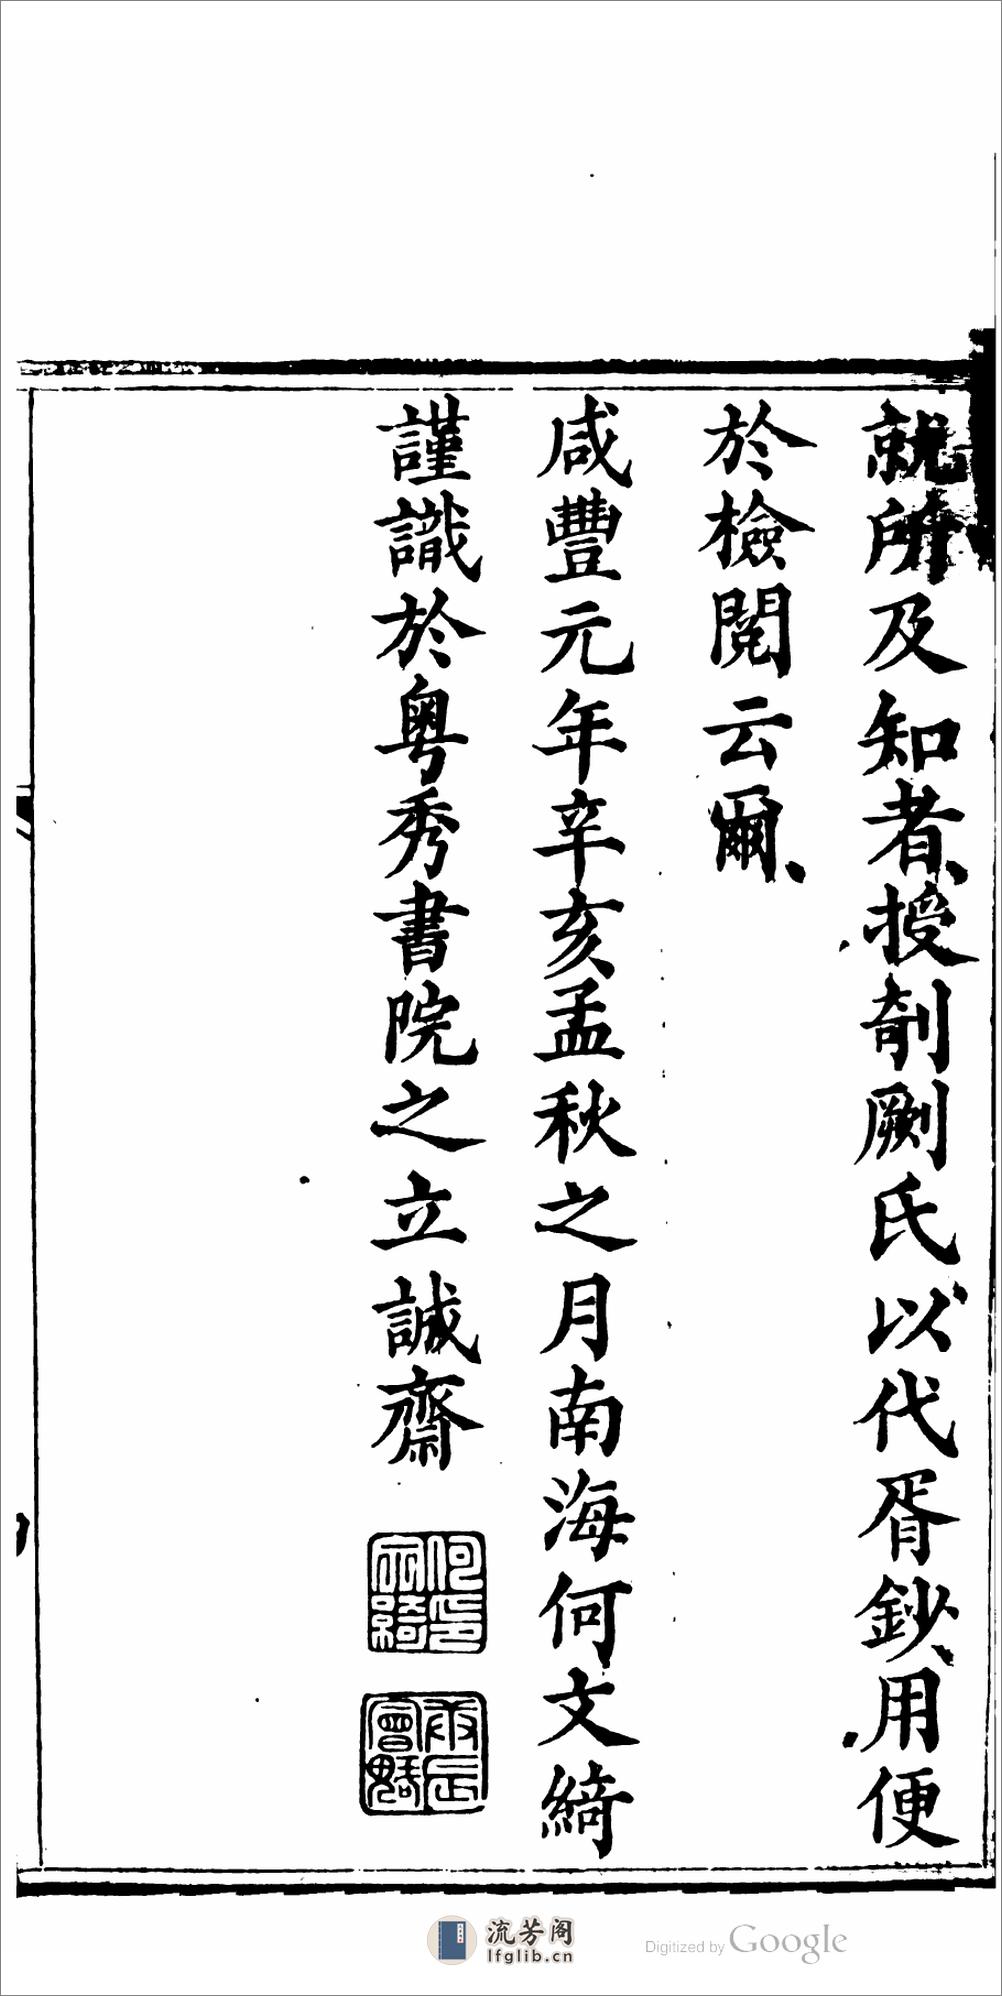 就所及知者、授剞劂氏以代胥鈔、用便
於檢閱云爾、
咸豐元年辛亥孟秋之月南海何文綺
謹識於粵秀書院之立誠齋
何文綺印
庚辰會魁
流芳阁
lfglib.cn
Digitized by Google